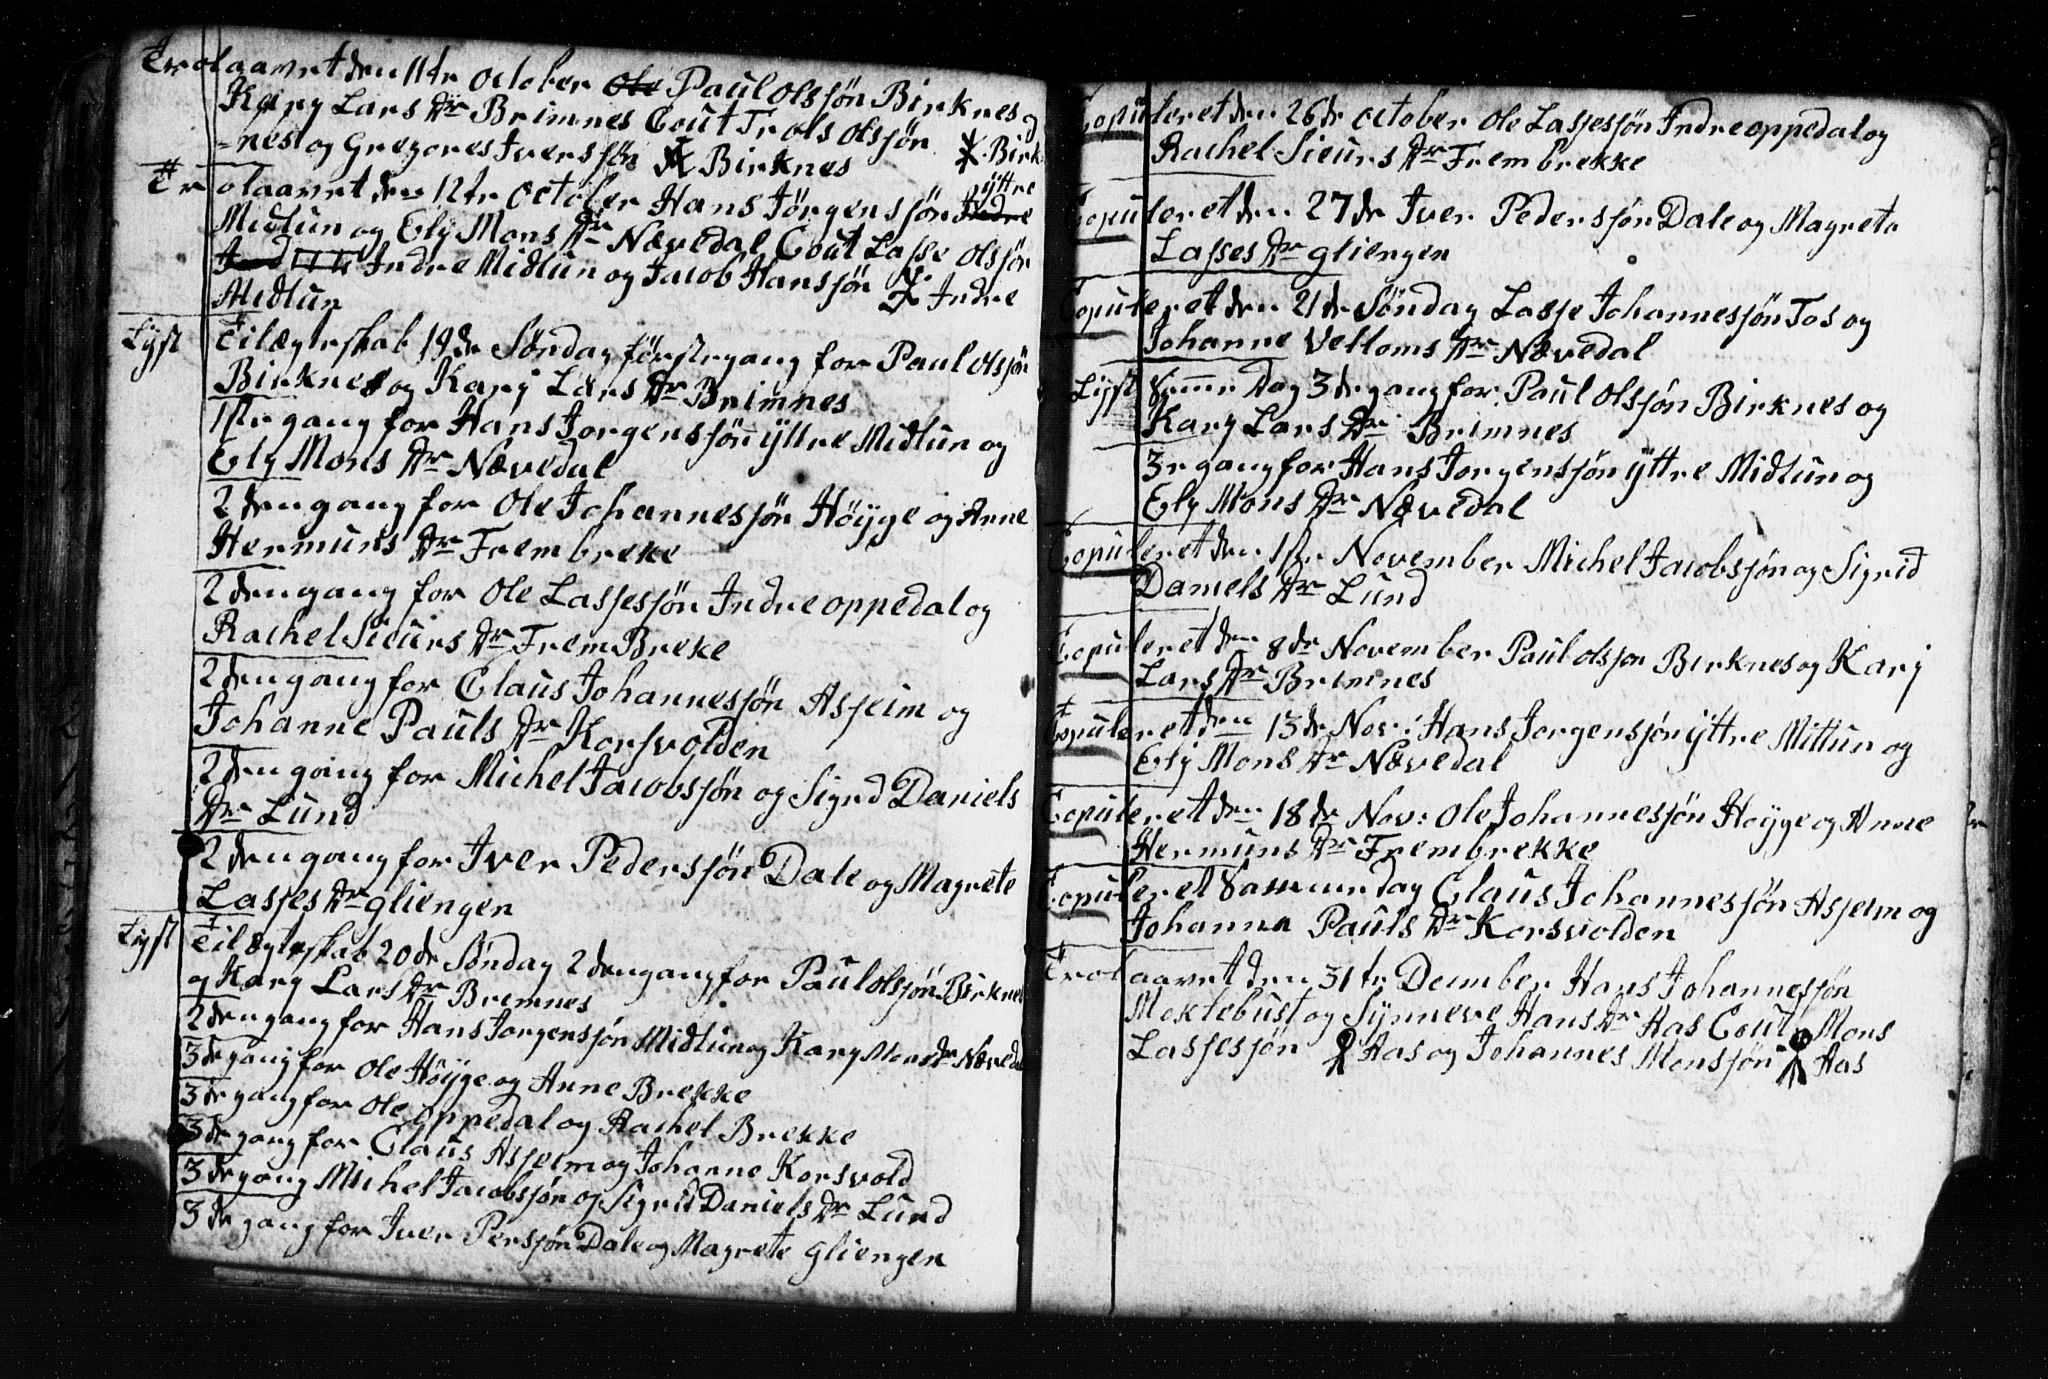 Trolaavet den 11te October Ole Paul Olssøn Birknes og
Kary Lars Dr Brimnes Cout Trols Olssøn Birk=
=nes og Gregores Iverssøn Birknes
Trolaavet den 12te October Hans Jörgenssøn Indre yttre
Midlun og Ely Mons Dr Nævedal Cout Lasse Olssøn
Indre Midlun og Jacob Hanssøn Indre
Midlun
Lyst Til Ægteskab 19de Søndag förstegang for Paul Olssøn
Birknes og Kary Lars Dr Brimnes
1ste gang for Hans Jorgenssøn ÿttre Midlun og
Ely Mons Dr Nævedal
2den gang for Ole Johannessøn Höyge og Anne
Hermuns Dr Frembreke
2den gang for Ole Lassessøn Indre oppedal og
Rachel Sieurs Dr Frem Breke
2den gang for Claus Johannessøn Asseim og
Johanne Pauls Dr Korsvolden
2den gang for Michel Jacobssøn og Sigrid Daniels
Dr Lund
2den gang for Iver Pederssøn Dale og Magrete
Lasses Dr gliengen
Lyst Til Ægteskab 20de Søndag 2den gang for Paul Olssøn Birknes
og Kary Lars Dr Brimnes
2den gang for Hans Jorgenssøn Midlun og Kary Mons Dr Nævedal
3de gang for Ole Höyge og Anne Brekke
3de gang for Ole oppedal og Rachel Brekke
3de gang for Claus Asseim og Johanne Korsvold
3de gang Michel Jacobssøn og Sigrid Daniels Dr Lund
3de gang for Iver Perssøn Dale og Magrete gliengen
Copuleret den 26de October Ole Lassessøn Indre oppedal og
Rachel Sieurs Dr Frembrekke
Copuleret den 27de Iver Pederssøn Dale og Magrete
Lasses Dr gliengen
Copuleret den 21de Søndag Lasse Johannessøn Tos og
Johanne Velloms Dr Nævedal
Lyst Samme Dag 3de gang for Paul Olssøn Birknes og
Kary Lars Dr Brimnes
3e gang for Hans Jorgenssøn ÿttre Midlun og
Ely Mons Dr Nævedal
Copuleret den 1ste November Michel Jacobssøn og Sigrid
Daniels Dr Lund
Copuleret den 8de November Paul Olsson Birknes og Kary
Lars Dr Brimnes
Copuleret den 13de Nov: Hans Jorgenssøn ÿttre Mittun og
Ely Mons Dr Nævedal
Copuleret den 18de Nov: Ole Johannessøn Höyge og Anne
Hermuns Dr Frembrekke
Copuleret Samme dag Claus Johannessøn Asseim og
Johanne Pauls Dr Korsvolden
Trolaavet den 31te December Hans Johannessøn
Moklebust og Synneve Hans Dr Aas Cout Mons
Lassessøn Aas og Johannes Monssøn Aas